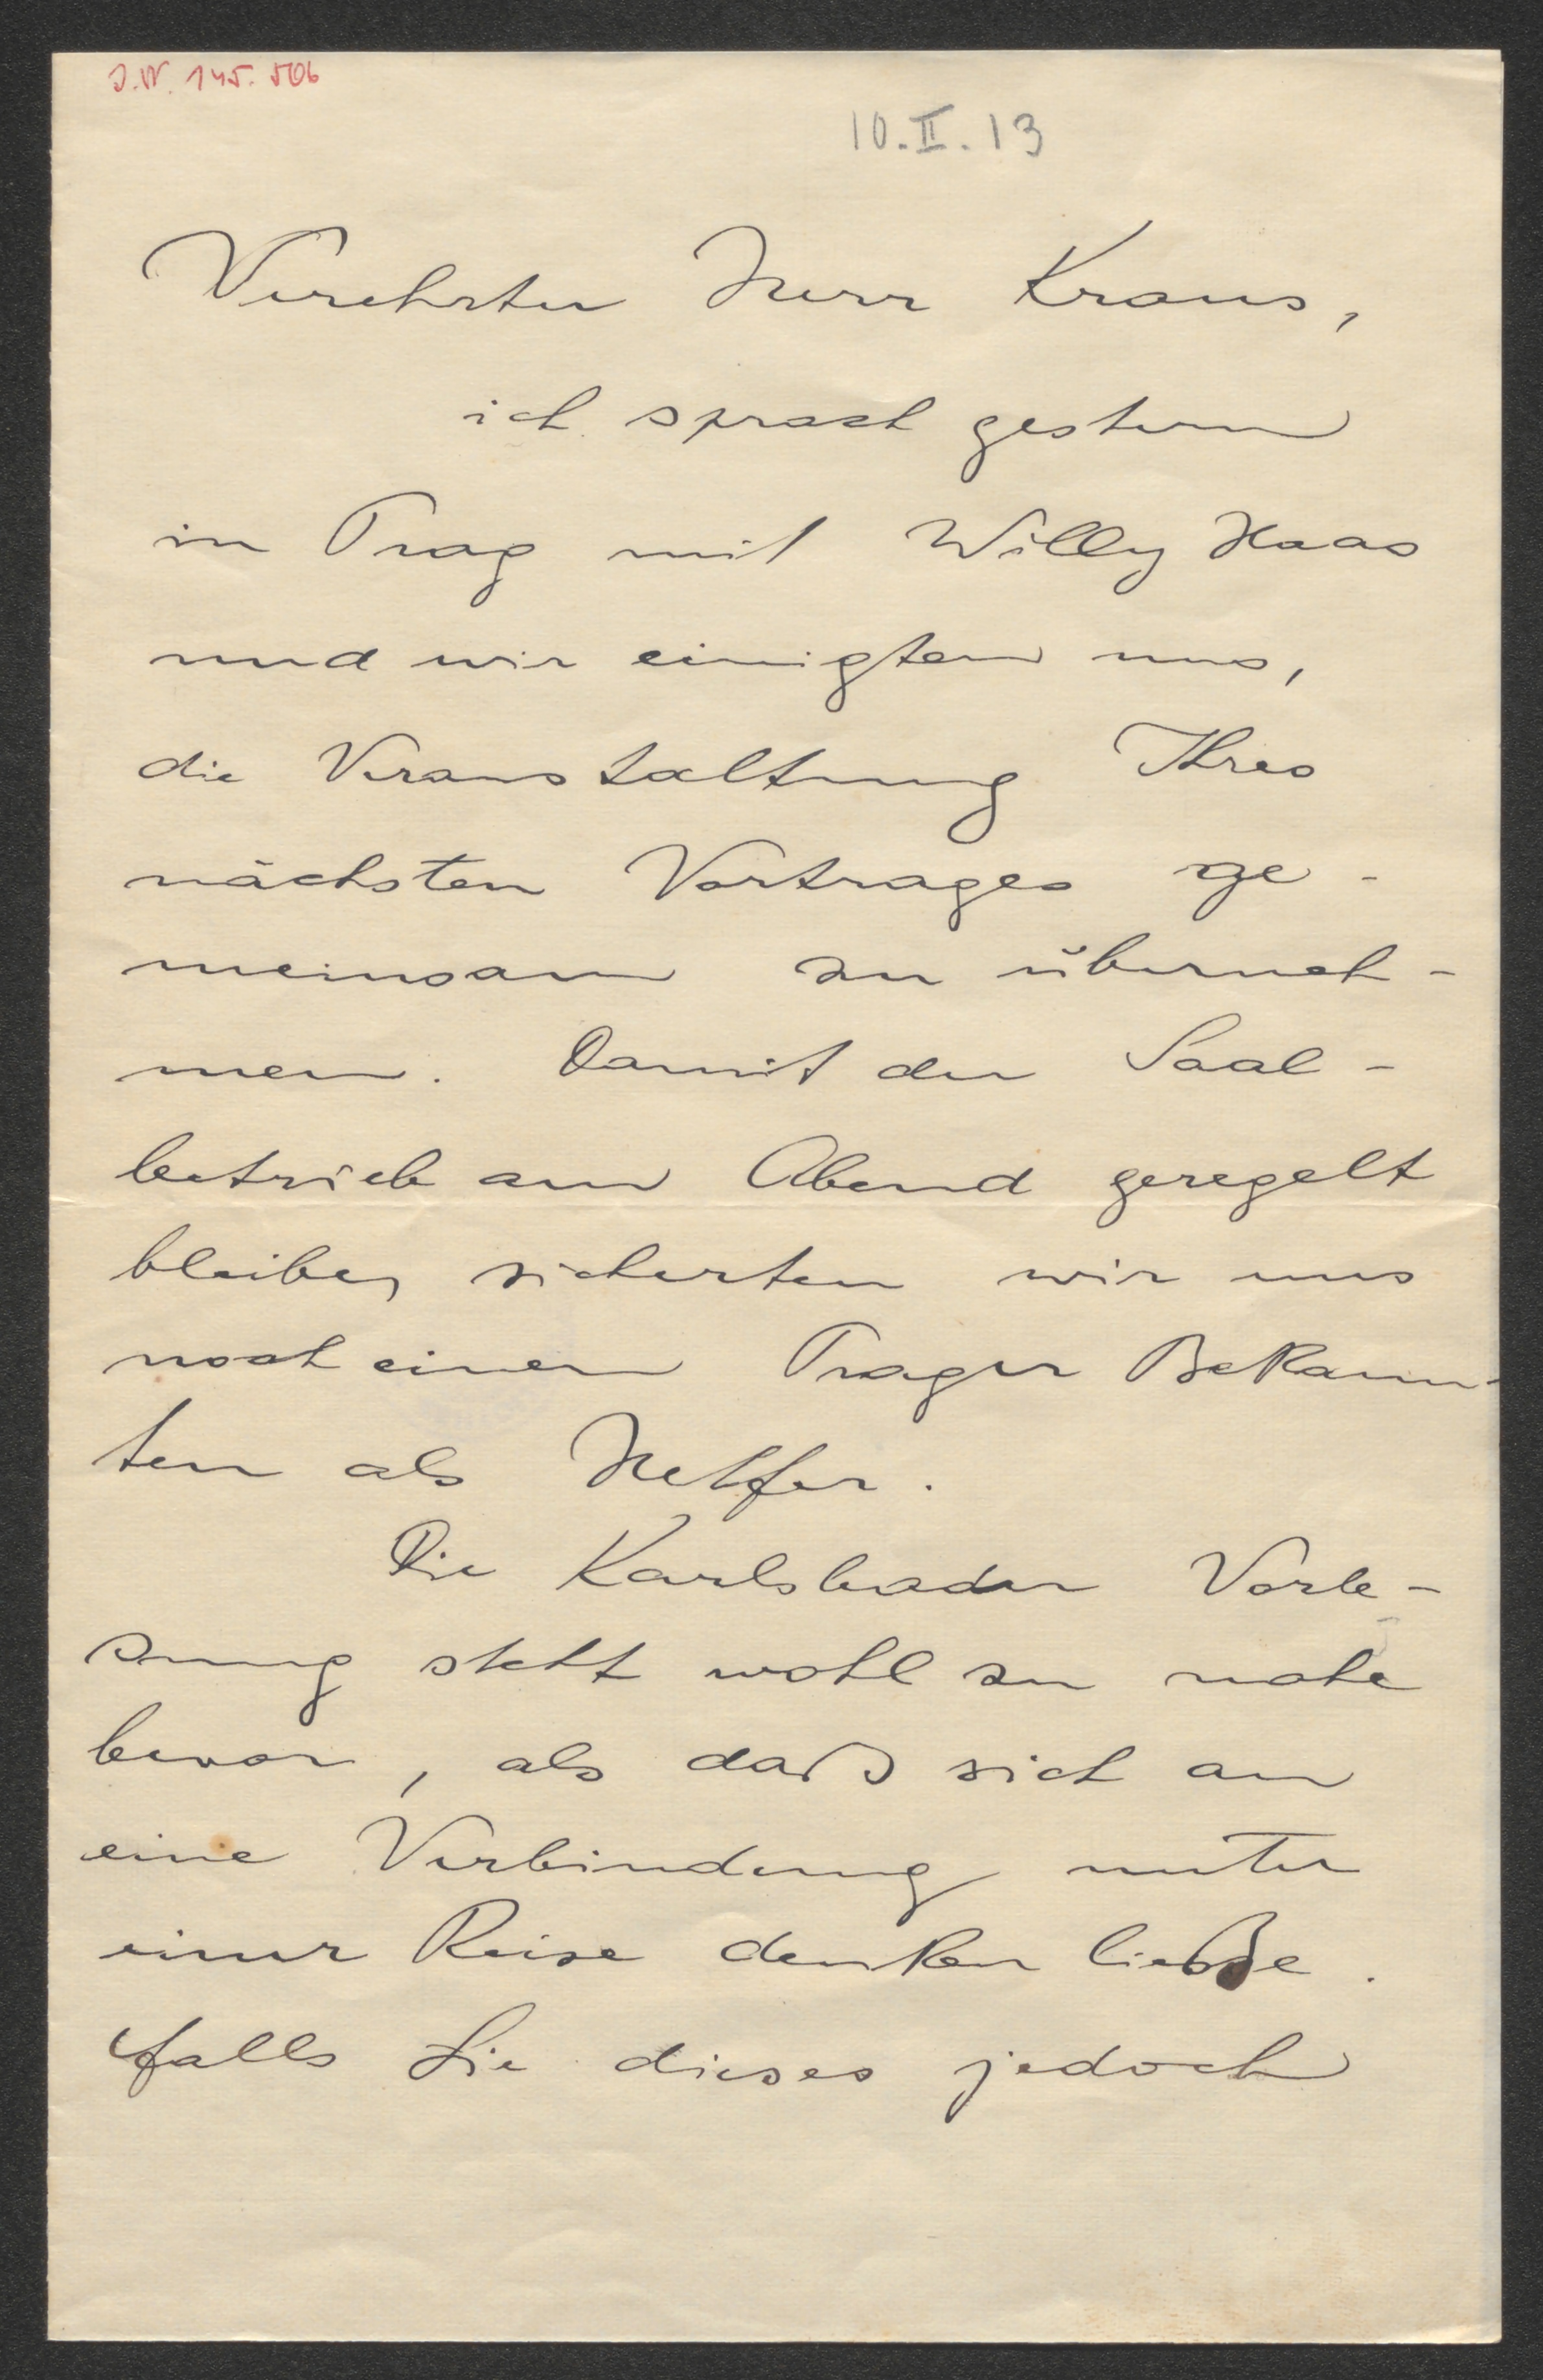 J.N. 145.506
10.II.13
Verehrter Herr Kraus,
ich sprach gestern
in Prag mit Willy Haas
und wir einigten uns,
die Veranstaltung Ihres
nächsten Vortrages ge-
meinsam zu überneh-
men. Damit der Saal-
betrieb am Abend geregelt
bleibe, sicherten wir uns
noch einen Prager Bekann-
ten als Helfer.
Die Karlsbader Vorle-
sung steht wohl zu nahe
bevor, als daß sich an
eine Verbindung unter
einer Reise denken ließe.
Falls Sie dieses jedoch